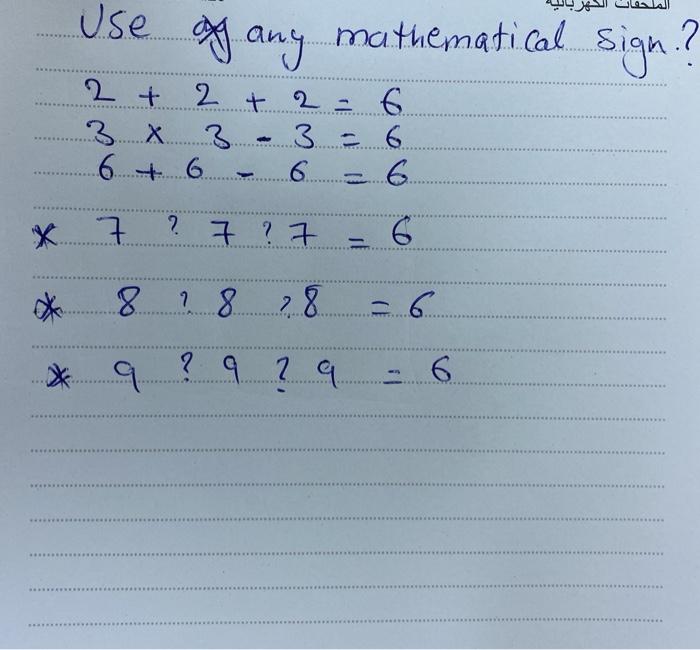 الملحقات الكهربائية
Use any mathematical sign.?
2 + 2 + 2 = 6
3 x 3 - 3 = 6
6 + 6 - 6 = 6
* 7 ? 7 ? 7 = 6
* 8 ? 8 ? 8 = 6
* 9 ? 9 ? 9 = 6